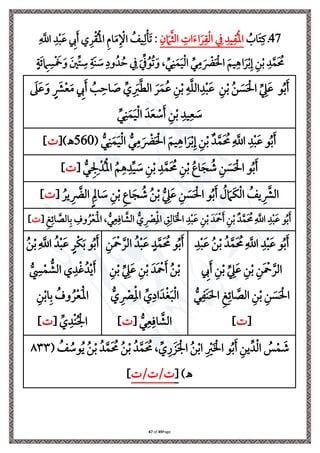 47. كِتَابُ الْمُفِيدِ فِي الْقِرَاءَاتِ الثَّمَانِ : تَأْلِيفُ الْإِمَامِ الْمُقْرِي أَبِي عَبْدِ اللَّهِ
مُحَمَّدِ بْنِ إِبْرَاهِيمَ الْحَضْرَمِيِّ الْيَمَنِيِّ، وَتُوُفِّيَ فِي حُدُودِ سَنَةِ سِتِّينَ وَخَمْسِمِائَةٍ
أَبُو عَلِيِّ الْحَسَنُ بْنُ عَبْدِ اللَّهِ بْنِ عُمَرَ الطَّبَرِيِّ صَاحِبُ أَبِي مَعْشَرٍ وَعَلَى
سَعِيدِ بْنِ أَسْعَدَ الْيَمَنِيِّ
أَبُو عَبْدِ اللَّهِ مُحَمَّدُ بْنُ إِبْرَاهِيمَ الْحَضْرَمِيُّ الْيَمَنِيُّ (560هـ)[ت]
أَبُو الْحَسَنِ شُجَاعُ بْنُ مُحَمَّدِ بْنِ سَيِّدِهِمُ الْمُدْلِجِيُّ [ت]
الشَّرِيفُ الْكَمَالُ أَبُو الْحَسَنِ عَلِيُّ بْنُ شُجَاعِ بْنِ سَالِمٍ الضَّرِيرُ [ت]
أَبُو عَبْدِ اللَّهِ مُحَمَّدُ بْنُ أَحْمَدَ بْنِ عَبْدِ الْخَالِقِ الْمِصْرِيُّ الشَّافِعِيُّ، الْمَعْرُوفُ بِالصَّائِغِ [ت]
أَبُو عَبْدِ اللَّهِ مُحَمَّدُ بْنُ عَبْدِ الرَّحْمَنِ بْنِ عَلِيِّ بْنِ أَبِي الْحَسَنِ بْنِ الصَّائِغِ الْحَنَفِيُّ [ت]
أَبُو مُحَمَّدٍ عَبْدُ الرَّحْمَنِ بْنُ أَحْمَدَ بْنِ عَلِيِّ بْنِ الْبَغْدَادِيِّ الْمِصْرِيُّ الشَّافِعِيُّ [ت]
أَبُو بَكْرٍ عَبْدُ اللَّهِ بْنُ أَيْدُغْدِي الشَّمْسِيُّ الْمَعْرُوفُ بِابْنِ الْجُنْدِيِّ [ت]
شَمْسُ الدِّينِ أَبُو الْخَيْرِ ابْنُ الْجَزَرِيِّ، مُحَمَّدُ بْنُ مُحَمَّدُ بْنُ يُوسُفُ (٨٣٣
هـ) [ت/ت/ت]
47 of 49Page